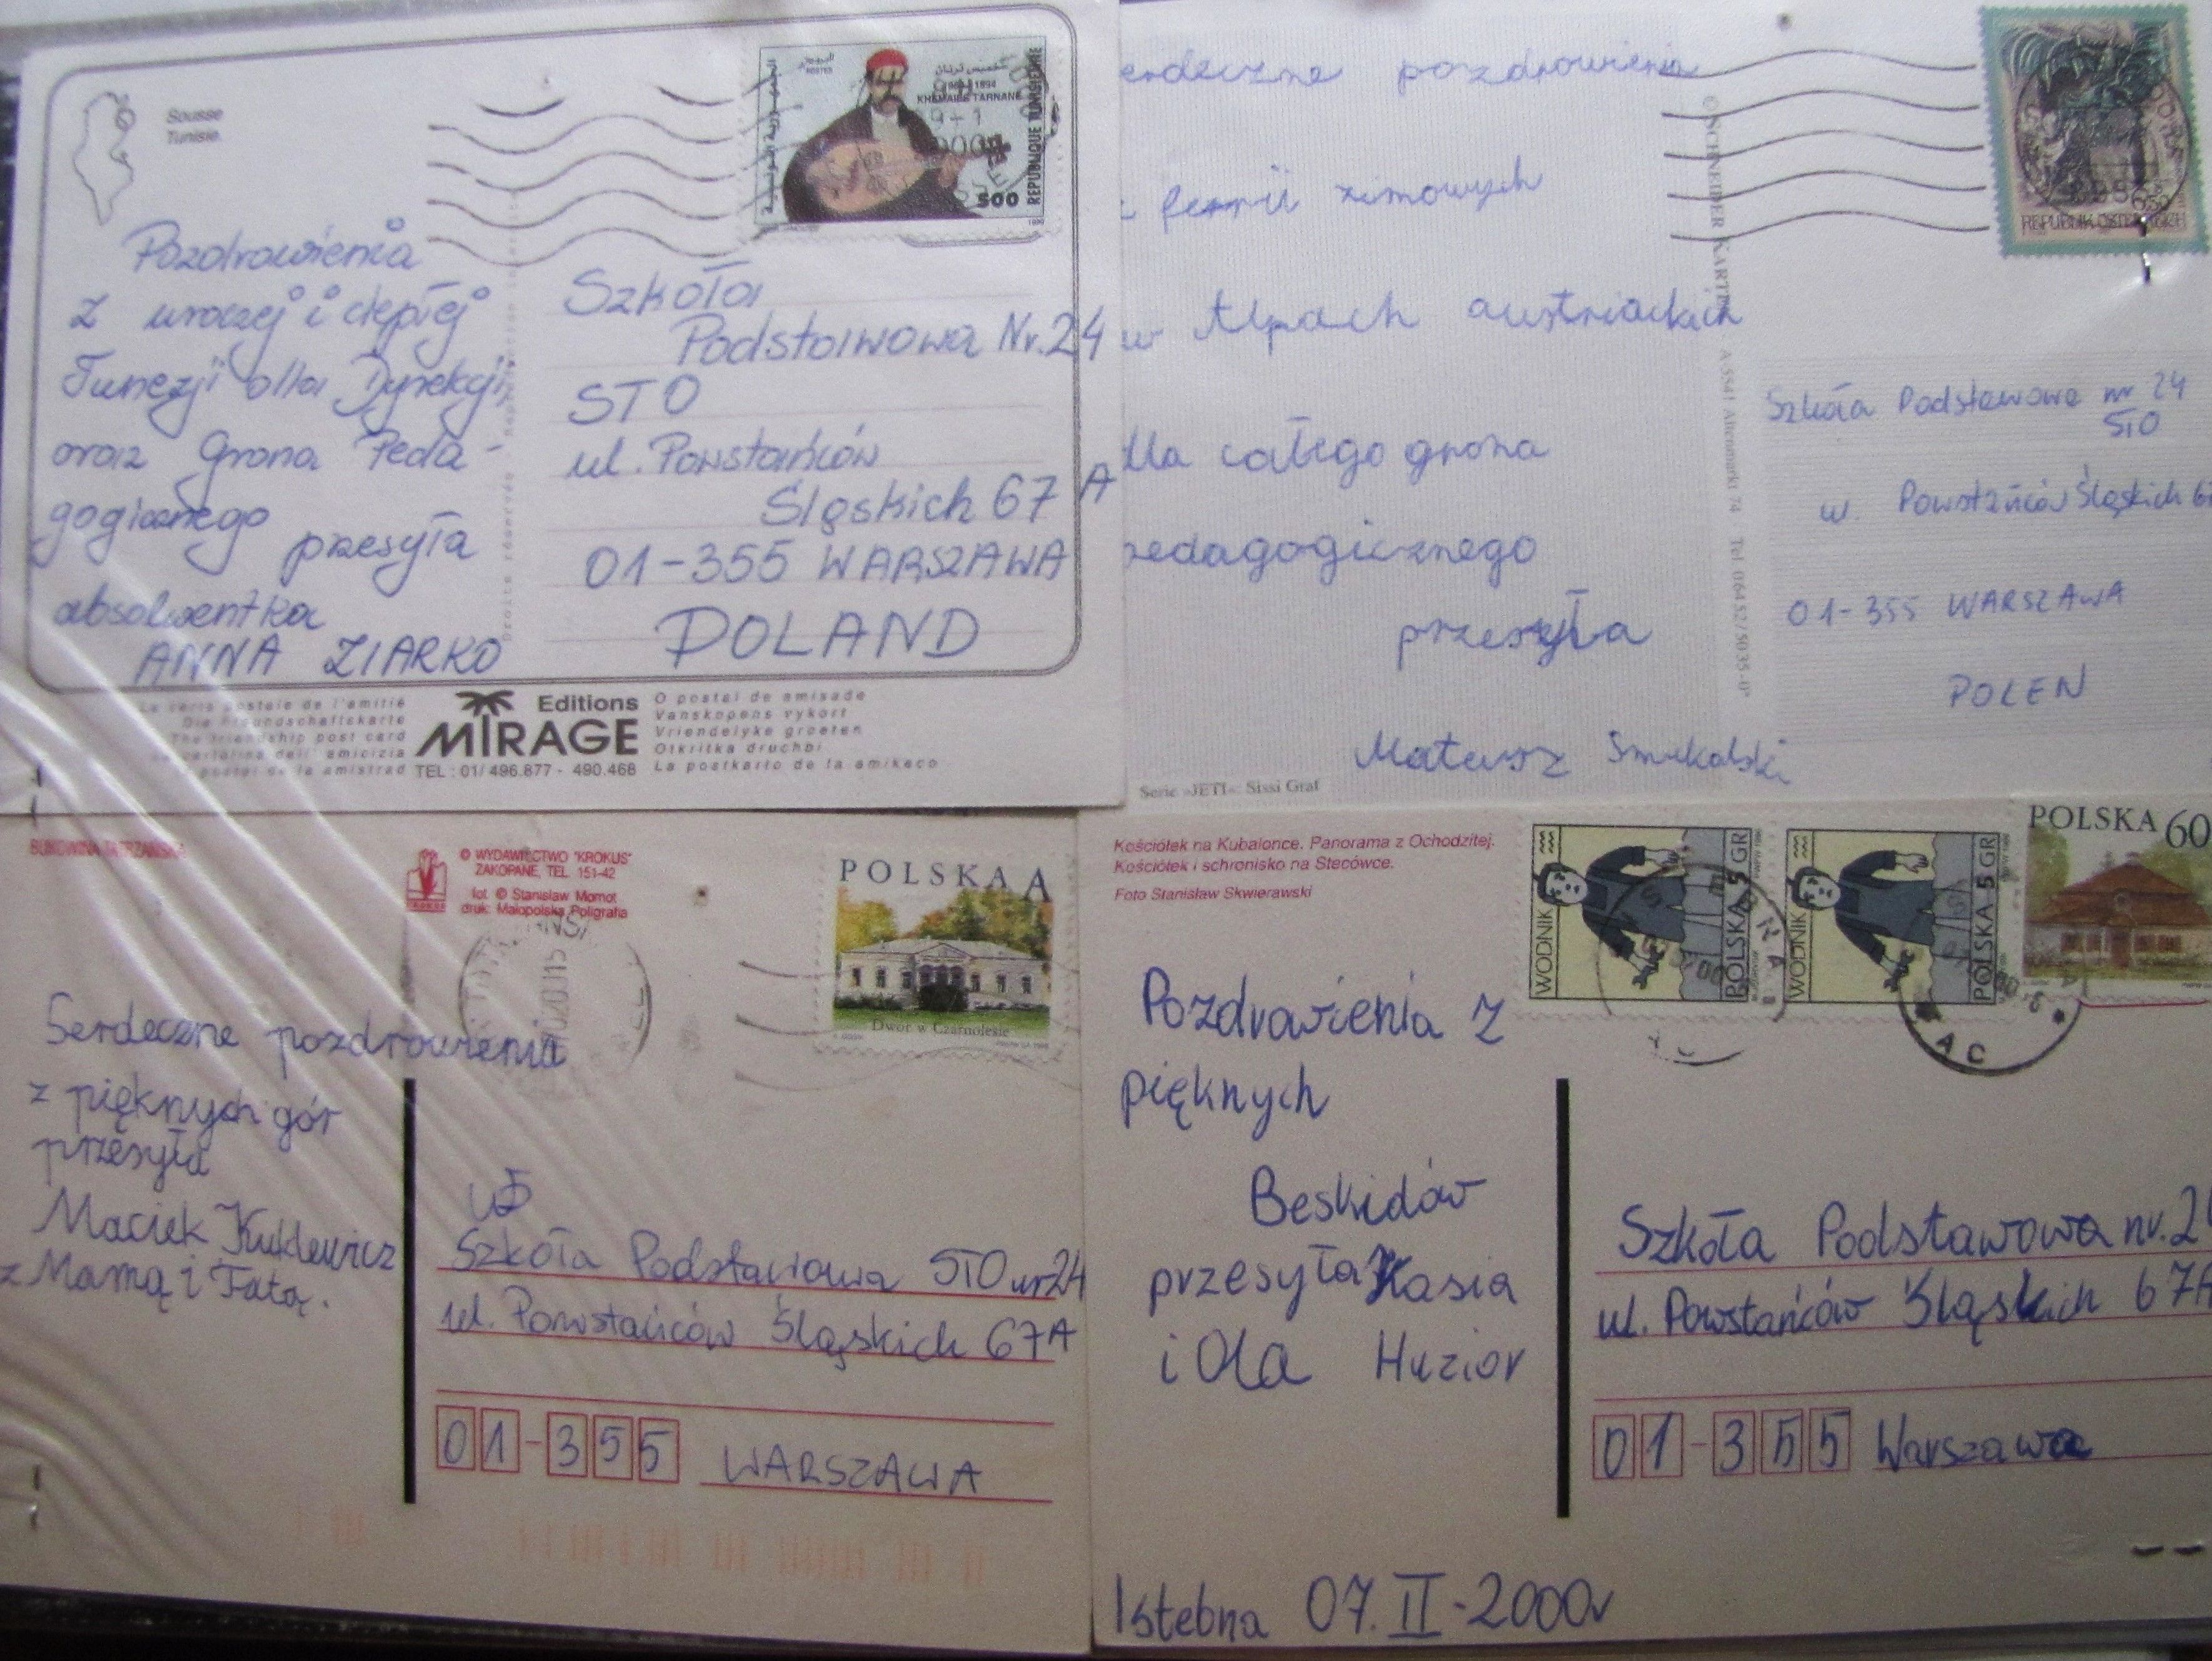 Sousse
Tunisie
1894
KHEMAIES TARNANE
500
REPUBLIQUE TUNISIENNE
Pozdrowienia
z uroczej i ciepłej
Tunezji dla Dyrekcji
oraz Grona Peda-
gogicznego przesyła
absolwentka
ANNA ZIARKO
Szkoła
Podstawowa Nr. 24
STO
ul. Powstańców
Śląskich 67 A
01-355 WARSZAWA
POLAND
La carte postale de l'amitié
Die Freundschaftskarte
The friendship post card
Editions
MIRAGE
TEL : 01/ 496.877 - 490.468
O postal de amisade
Vanskapens vykort
Vriendelyke groeten
Otkritka druchbi
La postkarto de la amikeco
erdeczne pozdrowienia
z ferii zimowych
w Alpach austriackich
dla całego grona
pedagogicznego
przesyła
Mateusz Smukalski
Serie »JETI«: Sissi Graf
© SCHNEIDER KARTEN · A 5541 Altenmarkt 74 Tel 06452/5035-0*
REPUBLIK ÖSTERREICH
Szkoła Podstawowa nr 24
STO
ul. Powstańców Śląskich 67
01-355 WARSZAWA
POLEN
BUKOWINA TATRZAŃSKA
© WYDAWNICTWO "KROKUS"
ZAKOPANE, TEL. 151-42
fot. © Stanisław Momot
druk: Małopolska Poligrafia
POLSKA A
Dwór w Czarnolesie
Serdeczne pozdrowienia
z pięknych gór
przesyła
Maciek Kuklewicz
z Mamą i Tatą.
Szkoła Podstawowa STO nr 24
ul. Powstańców Śląskich 67A
01-355 WARSZAWA
Kościółek na Kubalonce. Panorama z Ochodzitej.
Kościółek i schronisko na Stecówce.
Foto Stanisław Skwierawski
WODNIK
POLSKA 5 GR
WODNIK
POLSKA 5 GR
POLSKA 60
Pozdrowienia z
pięknych
Beskidów
przesyła Kasia
i Ola Huzior
Szkoła Podstawowa nr. 24
ul. Powstańców Śląskich 67A
01-355 Warszawa
Istebna 07. II - 2000r